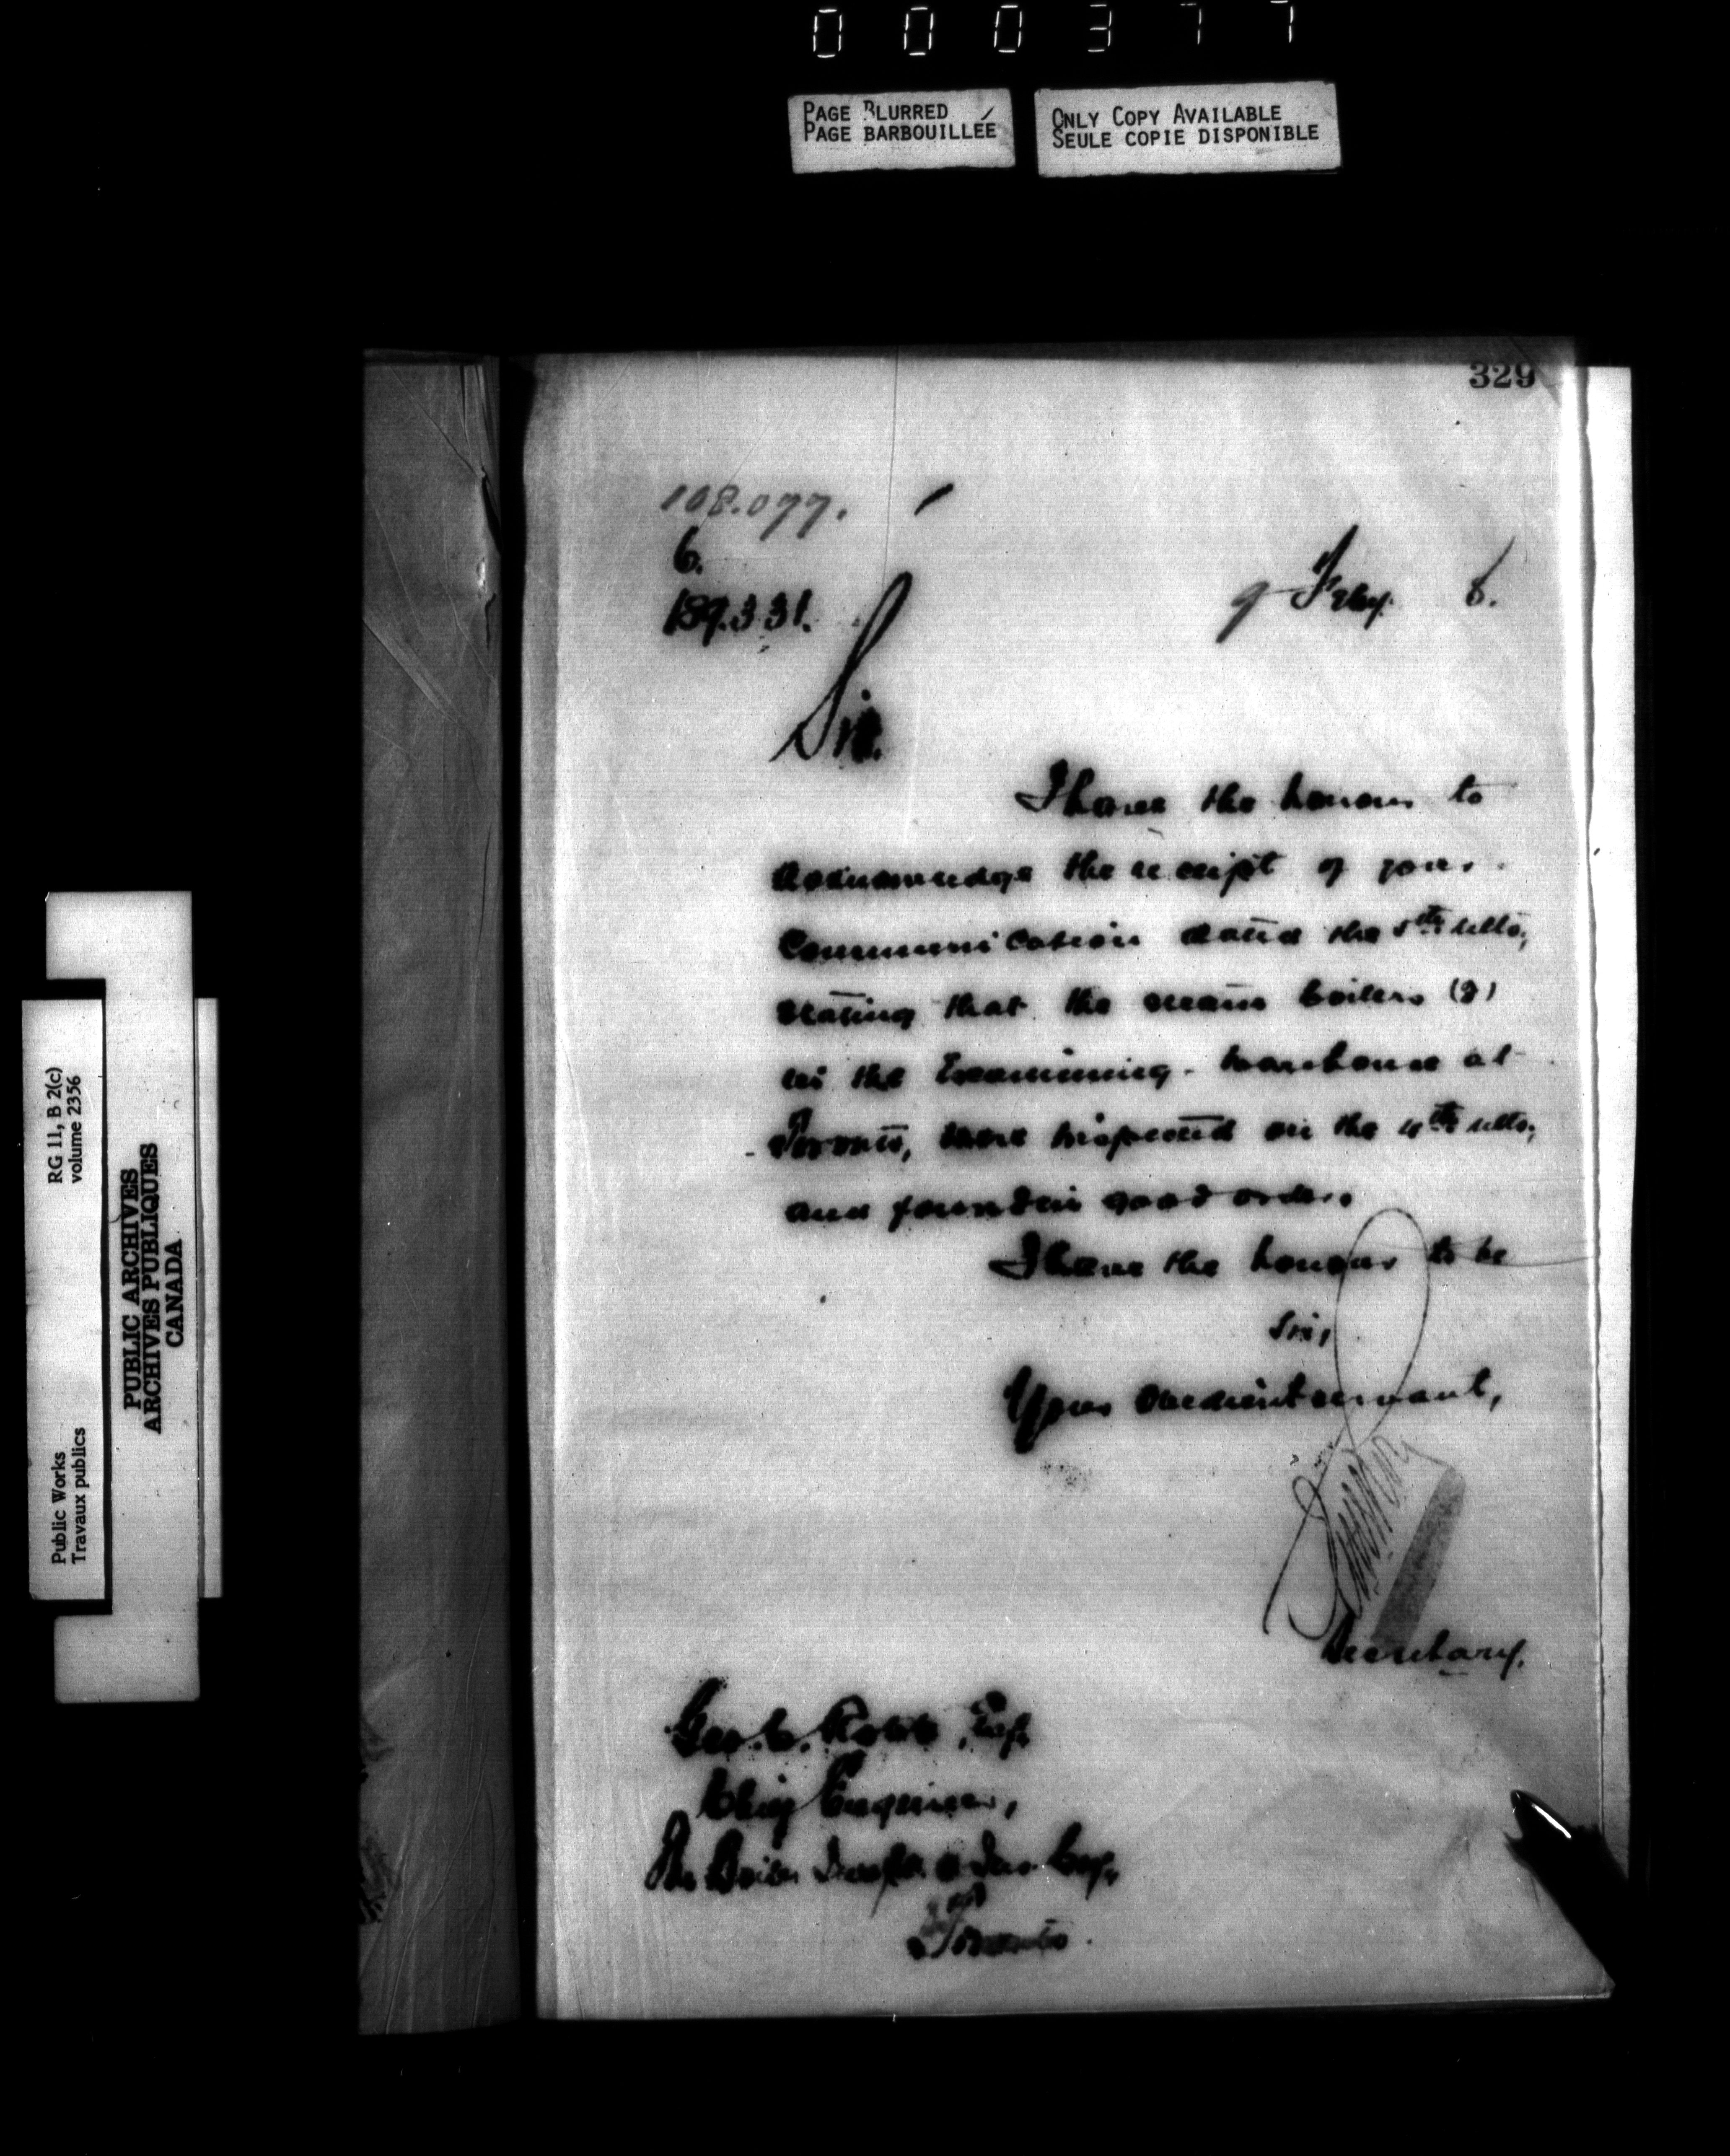 000377
PAGE BLURRED
PAGE BARBOUILLÉE
ONLY COPY AVAILABLE
SEULE COPIE DISPONIBLE
329
108.077.
6.
189.331.
9 Feby. 8.
Sir.
I have the honour to
acknowledge the receipt of your
communication dated the 5th ulto,
stating that the steam boilers
in the Examining Warehouse at
Toronto, were inspected on the 4th ulto,
and found in good order.
I have the honour to be
Sir,
Your obedient servant,
Secretary.
Geo. C. Robb, Esq.
Chief Engineer,
The Boiler Inspn. & Ins. Coy.
Toronto.
RG 11, B 2(c)
volume 2356
Public Works
Travaux publics
PUBLIC ARCHIVES
ARCHIVES PUBLIQUES
CANADA